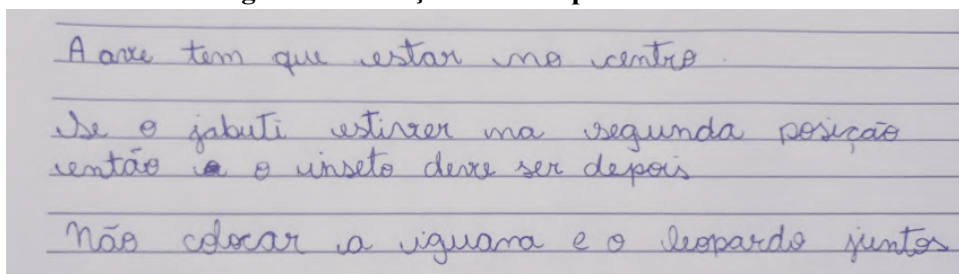 A ave tem que estar no centro.
Se o jabuti estiver na segunda posição
então o inseto deve ser depois
Não colocar a iguana e o leopardo juntos